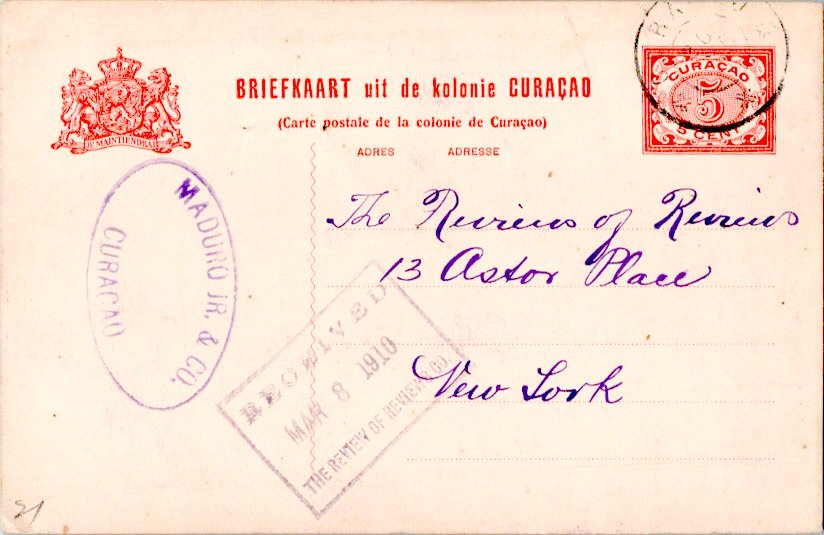 BRIEFKAART uit de kolonie CURAÇAO
(Carte postale de la colonie de Curaçao)
ADRES ADRESSE
JE MAINTIENDRAI
CURAÇAO
5
5 CENT
The Reviews of Reviews
13 Astor Place
New York
MADURO JR. & CO.
CURACAO
RECEIVED
MAR 8 1910
THE REVIEW OF REVIEWS CO.
21